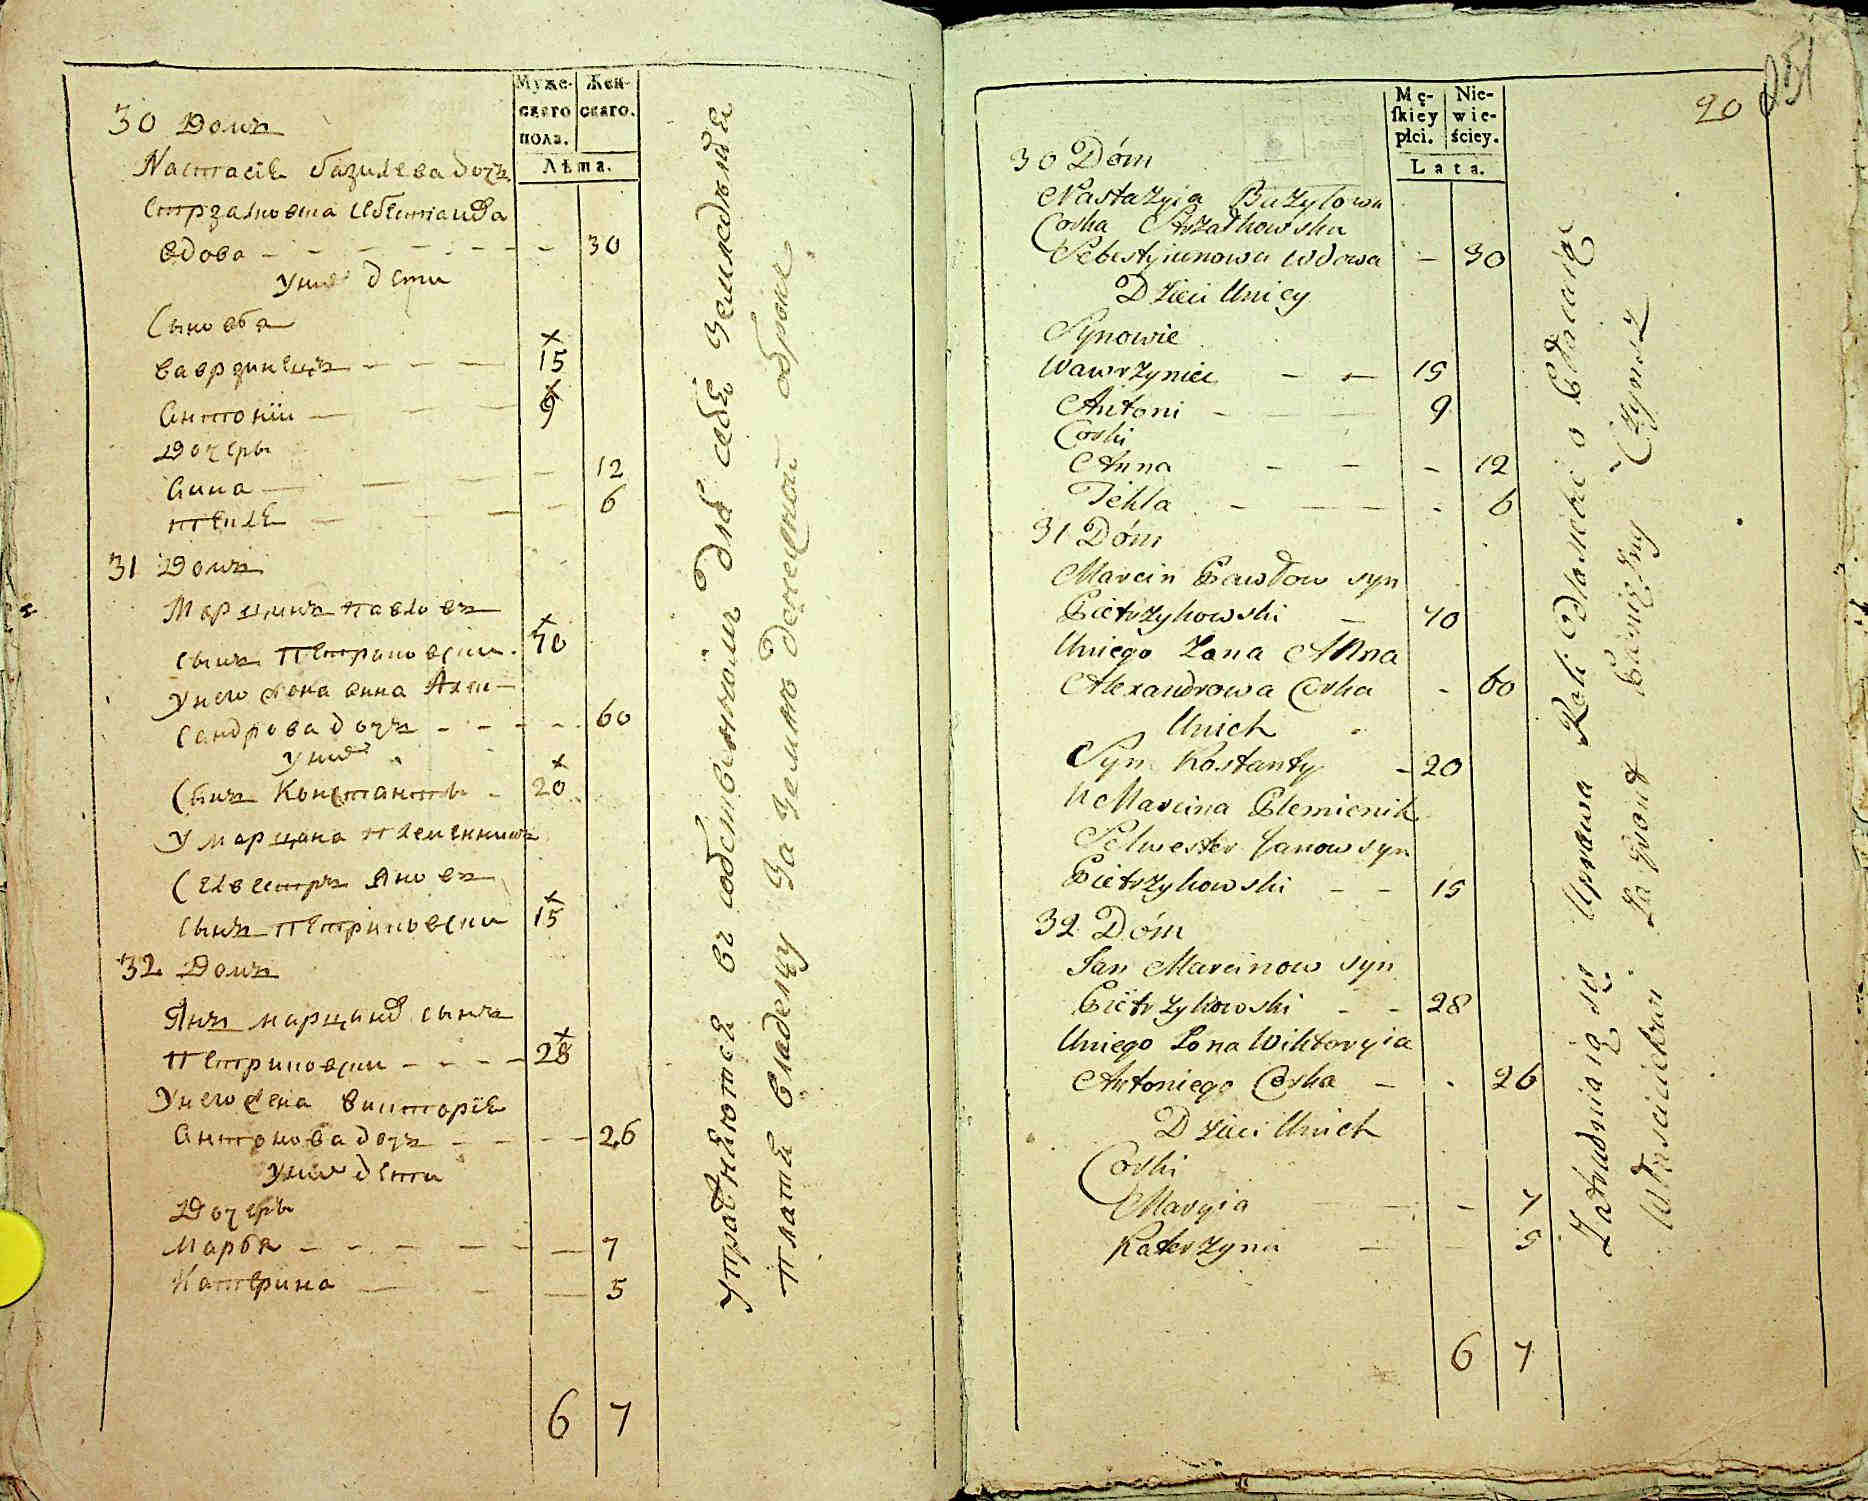 Муже-
скаго
пола.
Жен-
скаго.
Лѣта.
30 Домъ
Настасіѣ базилева дочъ
Стрзалковска Себестіанова
вдова - - - - - - - 30
У ней дети
Сыновѣ
Вавржинецъ - - - - 15
Антоніи - - - 9
Дочеры
Анна - - - - 12
текле - - - - 6
31 Домъ
Марцинъ павловъ
сынъ петриковски. 70
У него жена анна Алек-
сандрова дочъ - - - - 60
У нихъ
Сынъ Константы - 20
У марцина племенникъ
Селвестръ Яновъ
сынъ петриковски 15
32 Домъ
Янъ марцинов сынъ
петриковски - - - - 28
У него жена викторіѣ
антонова дочъ - - - - 26
У них дети
Дочеры
Марѣя - - - - - - 7
Катерина - - - 5
6 7
Упражняются въ собственномъ для себя земледелія
платя владелцу за землю денежной оброкъ.
20
Mę-
skiey
płci.
Nie-
wie-
ściey.
Lata.
30 Dóm
Nastazyia Bazylowa
Corka Strzałkowska
Sebestyianowa wdowa - 30
Dzieci Uniey
Synowie
Wawrzyniec - - 15
Antoni - - - 9
Corki
Anna - - - 12
Tekla - - - - - 6
31 Dóm
Marcin Pawłow syn
Pietrzykowski - 70
Uniego Zona Anna
Alexandrowa Corka - 60
Unich
Syn Kostanty - 20
U Marcina Plemienik
Selwester Janow syn
Pietrzykowski - - 15
32 Dóm
Jan Marcinow syn
Pietrzykowski - - 28
Uniego Zona Wiktoryia
Antoniego Corka - - 26
Dzieci Unich
Corki
Maryia - - 7
Katerzyna - - 5
6 7
Zatrudniaią się Uprawą Roli Własney
Właścicielowi za grunt Pieniężny Czynsz